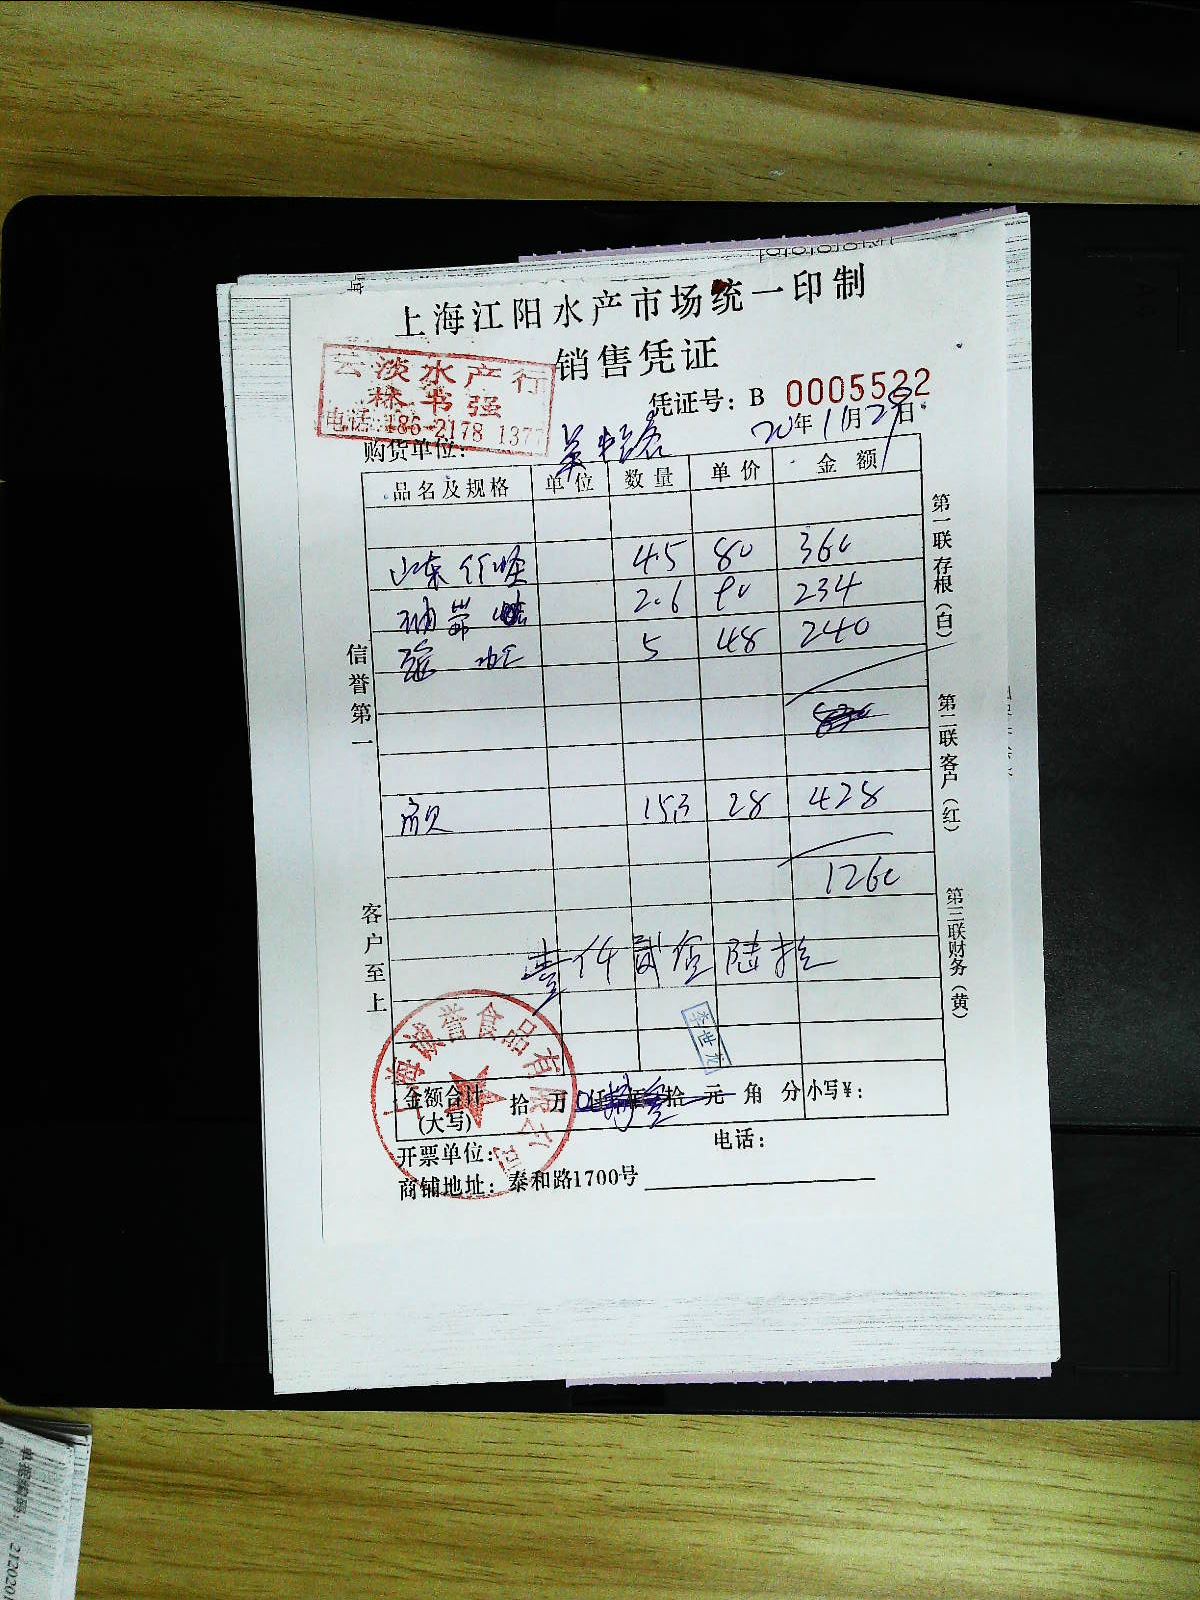 上海江阳水产市场统一印制
销售凭证
云淡水产行
林书强
电话:186-2178 1377
凭证号: B 0005522
购货单位:
20年11月29日
品名及规格 单位 数量 单价 金额
山东 45 80 360
2.6 90 234
5 48 240
153 28 428
1260
壹仟贰佰陆拾
李世龙
上海诚誉食品有限公司
金额合计(大写) 拾 万 仟 佰 拾 元 角 分 小写¥:
开票单位: 电话:
商铺地址: 泰和路1700号
信誉第一
客户至上
第一联存根(白)
第二联客户(红)
第三联财务(黄)